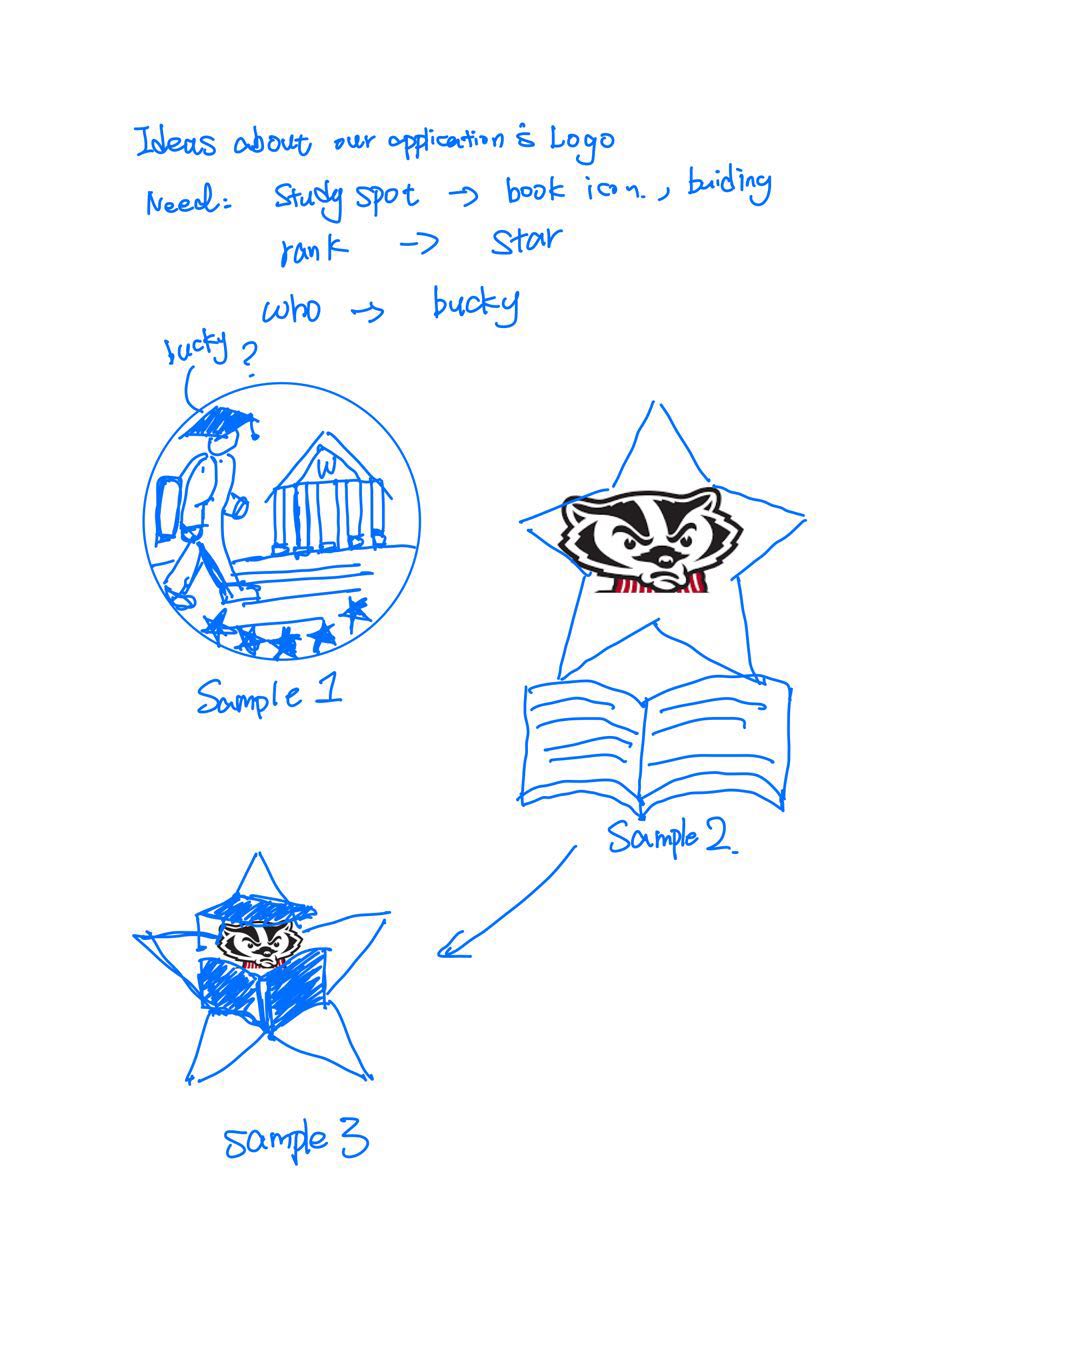 Ideas about our application's Logo
Need: Study spot → book icon., buiding
rank → star
who → bucky
bucky?
W
Sample 1
Sample 2.
sample 3